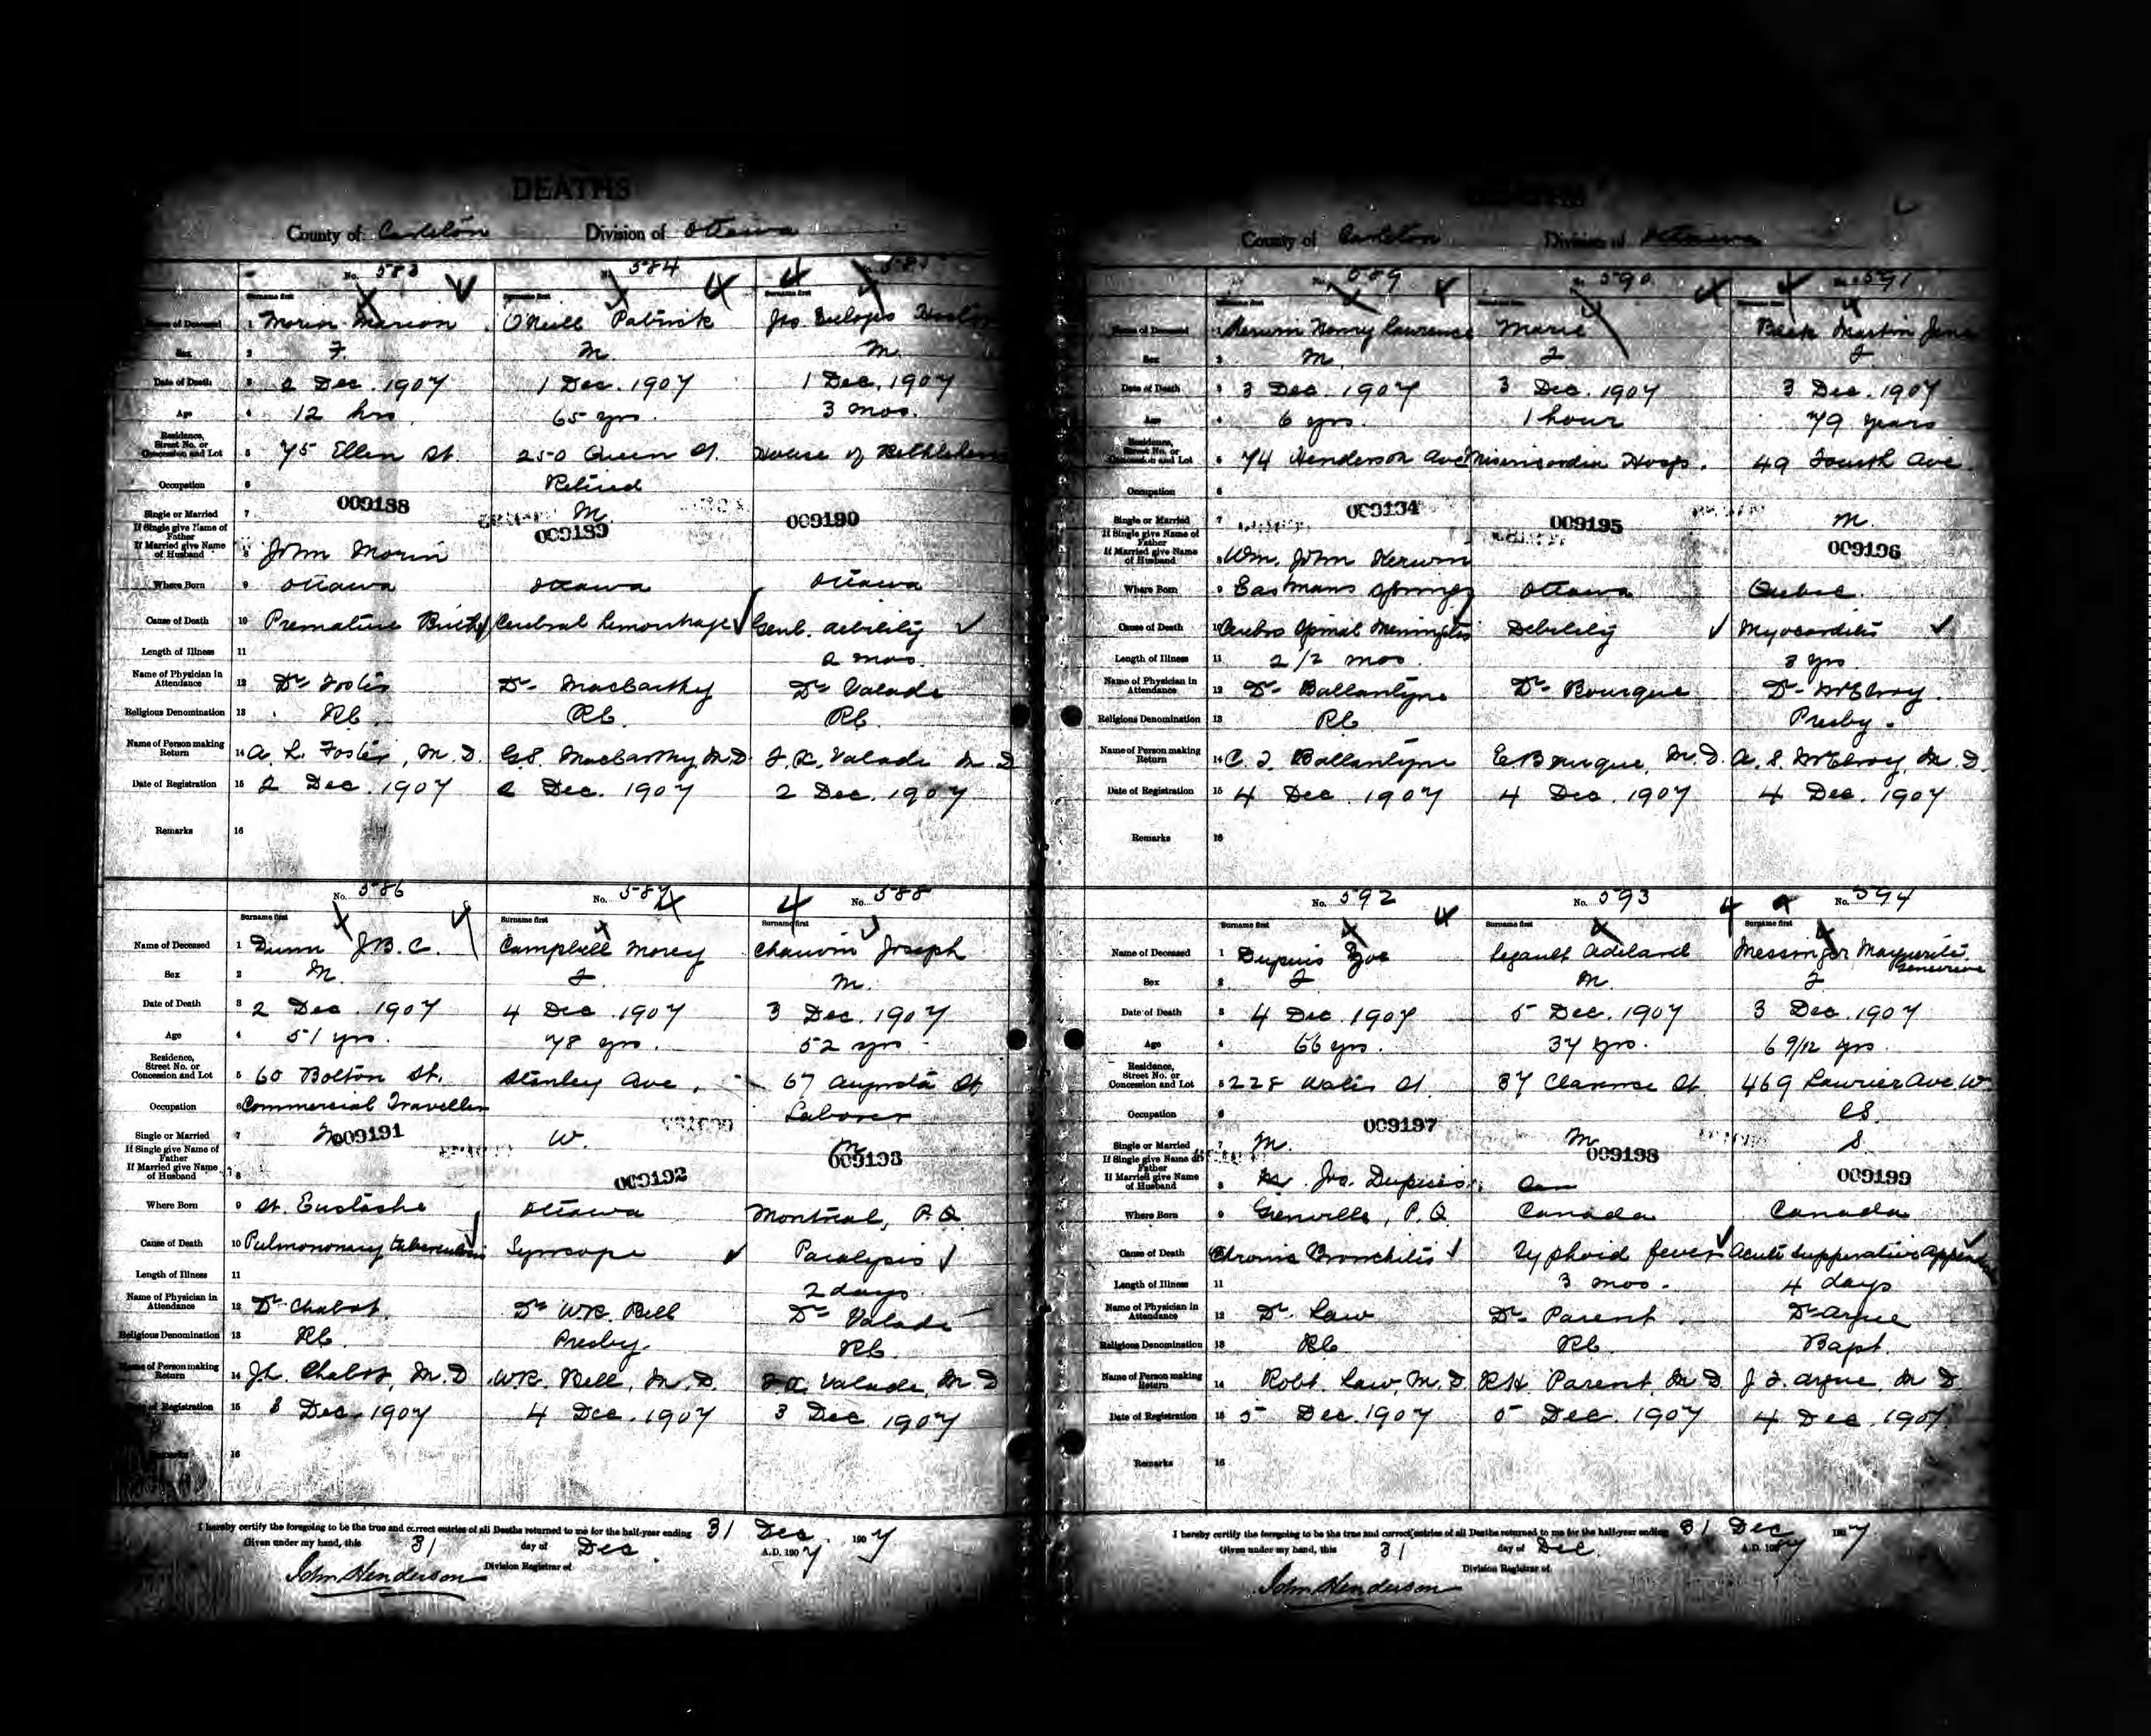 DEATHS
County of Carleton Division of Ottawa
No. 583 No. 584 No. 585
Surname first Surname first Surname first
Name of Deceased 1 Morin Marion O'Neill Patrick Jos. Eulogis
Sex 2 F. M. M.
Date of Death 3 2 Dec. 1907 1 Dec. 1907 1 Dec. 1907
Age 4 12 hrs. 65 yrs. 3 mos.
Residence, Street No. or Concession and Lot 5 75 Ellen St. 250 Queen St. House of Bethlehem
Occupation 6 Retired
Single or Married 7 009188 M. 009189 009190
If Single give Name of Father
If Married give Name of Husband 8 John Morin
Where Born 9 Ottawa Ottawa Ottawa
Cause of Death 10 Premature Birth Cerebral hemorrhage Genl. debility
Length of Illness 11 2 mos.
Name of Physician in Attendance 12 Dr. Foster Dr. MacCarthy Dr. Valade
Religious Denomination 13 RC. RC. RC.
Name of Person making Return 14 A. L. Foster, M.D. G.S. MacCarthy, M.D. F. X. Valade M.D
Date of Registration 15 2 Dec. 1907 2 Dec. 1907 2 Dec. 1907
Remarks 16
No. 586 No. 587 No. 588
Surname first Surname first Surname first
Name of Deceased 1 Dunn J.B.C. Campbell Morey Chauvin Joseph
Sex 2 M. F. M.
Date of Death 3 2 Dec. 1907 4 Dec. 1907 3 Dec. 1907
Age 4 51 yrs. 78 yrs. 52 yrs.
Residence, Street No. or Concession and Lot 5 60 Bolton St. Stanley Ave. 67 Augusta St
Occupation 6 Commercial Traveller Laborer
Single or Married 7 009191 W. M.
If Single give Name of Father 009193
If Married give Name of Husband 8 009192
Where Born 9 St. Eustache Ottawa Montreal, P.Q.
Cause of Death 10 Pulmonary tuberculosis Syncope Paralysis
Length of Illness 11 2 days
Name of Physician in Attendance 12 Dr. Chabot. Dr. W.R. Bell Dr. Valade
Religious Denomination 13 RC. Presby. RC.
Name of Person making Return 14 J.L. Chabot, M.D W.R. Bell, M.D. F.X. Valade, M.D
Date of Registration 15 3 Dec. 1907 4 Dec. 1907 3 Dec. 1907
Remarks 16
I hereby certify the foregoing to be the true and correct entries of all Deaths returned to me for the half-year ending 31 Dec. 1907
Given under my hand, this 31 day of Dec. A.D. 1907
John Henderson Division Registrar of
County of Carleton Division of Ottawa
No. 589 No. 590 No. 591
Surname first Surname first Surname first
Name of Deceased 1 Kerwin Henry Lawrence Marie Beck Martin Jane
Sex 2 M. F F
Date of Death 3 3 Dec. 1907 3 Dec. 1907 3 Dec. 1907
Age 4 6 yrs. 1 hour 79 years
Residence, Street No. or Concession and Lot 5 74 Henderson Ave Misericordia Hosp. 49 Fourth Ave.
Occupation 6
Single or Married 7 009194 009195 M.
If Single give Name of Father
If Married give Name of Husband 8 Wm. John Kerwin 009196
Where Born 9 Eastmans Springs Ottawa Quebec.
Cause of Death 10 Cerebro Spinal Meningitis Debility Myocarditis
Length of Illness 11 2 1/2 mos. 3 yrs.
Name of Physician in Attendance 12 Dr. Ballantyne Dr. Bourque Dr. McElroy.
Religious Denomination 13 RC Presby.
Name of Person making Return 14 C. T. Ballantyne E. Bourque, M.D. A. S. McElroy, M.D.
Date of Registration 15 4 Dec. 1907 4 Dec. 1907 4 Dec. 1907
Remarks 16
No. 592 No. 593 No. 594
Surname first Surname first Surname first
Name of Deceased 1 Dupuis Zoe Legault Adelard Messenger Marguerite Genevieve
Sex 2 F M. F
Date of Death 3 4 Dec. 1907 5 Dec. 1907 3 Dec. 1907
Age 4 66 yrs. 37 yrs. 6 9/12 yrs
Residence, Street No. or Concession and Lot 5 228 Water St. 37 Clarence St. 469 Laurier Ave. W.
Occupation 6
Single or Married 7 M. 009197 M 009198 S.
If Single give Name of Father
If Married give Name of Husband 8 Jos. Dupuis 009199
Where Born 9 Grenville, P.Q. Canada Canada
Cause of Death 10 Chronic Bronchitis Typhoid fever Acute Suppurative Appendicitis
Length of Illness 11 3 mos. 4 days
Name of Physician in Attendance 12 Dr. Law Dr. Parent. Dr Argue
Religious Denomination 13 RC RC Bapt.
Name of Person making Return 14 Robt. Law, M.D. R.H. Parent, M.D J. F. Argue, M.D
Date of Registration 15 5 Dec. 1907 5 Dec. 1907 4 Dec. 1907
Remarks 16
I hereby certify the foregoing to be the true and correct entries of all Deaths returned to me for the half-year ending 31 Dec 1907
Given under my hand, this 31 day of Dec. A.D. 1907
John Henderson Division Registrar of